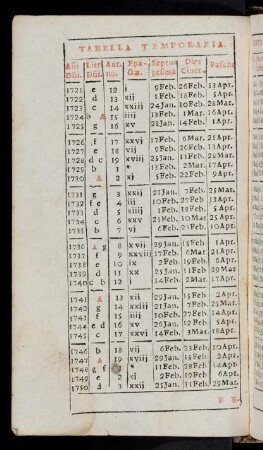 TABELLA TEMPORARIA.
Añi Dñi. Litt. Dñi. Aur. nu. Epa- ctæ. Septua gesima Dies Ciner. Pascha
1721 e 12 i 9 Feb. 26 Feb. 13 Apr.
1722 d 13 xij 1 Feb. 18 Feb. 5 Apr.
1723 c 14 xxiij 24 Jan. 10 Feb. 28 Mar.
1724 b A 15 iiij 13 Feb. 1 Mar. 16 Apr.
1725 g 16 xv 28 Jan. 14 Feb. 1 Apr.
1726 f 17 xxvj 17 Feb. 6 Mar. 21 Apr.
1727 e 18 vij 9 Feb. 26 Feb. 13 Apr.
1728 d c 19 xviij 25 Jan. 11 Feb. 28 Mar.
1729 b 1 * 13 Feb. 2 Mar. 17 Apr.
1730 A 2 xj 5 Feb. 22 Feb. 9 Apr.
1731 g 3 xxij 21 Jan. 7 Feb. 25 Mar.
1732 f e 4 iij 10 Feb. 27 Feb. 13 Apr.
1733 d 5 xiiij 1 Feb. 18 Feb. 5 Apr.
1734 c 6 xxv 21 Feb. 10 Mar. 25 Apr.
1735 b 7 vj 6 Feb. 23 Feb. 10 Apr.
1736 A g 8 xvij 29 Jan. 15 Feb. 1 Apr.
1737 f 9 xxviij 17 Feb. 6 Mar. 21 Apr.
1738 e 10 ix 2 Feb. 19 Feb. 6 Apr.
1739 d 11 xx 25 Jan. 11 Feb. 29 Mar.
1740 c b 12 i 14 Feb. 2 Mar. 17 Apr.
1741 A 13 xij 29 Jan. 15 Feb. 2 Apr.
1742 g 14 xxiij 21 Jan. 7 Feb. 25 Mar.
1743 f 15 iiij 10 Feb. 27 Feb. 14 Apr.
1744 e d 16 xv 2 Feb. 19 Feb. 5 Apr.
1745 c 17 xxvj 14 Feb. 3 Mar. 18 Apr.
1746 b 18 vij 6 Feb. 23 Feb. 10 Apr.
1747 A 19 xviij 29 Jan. 15 Feb. 2 Apr.
1748 g f * 11 Feb. 28 Feb. 14 Apr.
1749 e 2 xj 2 Feb. 19 Feb. 6 Apr.
1750 d 3 xxij 25 Jan. 11 Feb. 29 Mar.